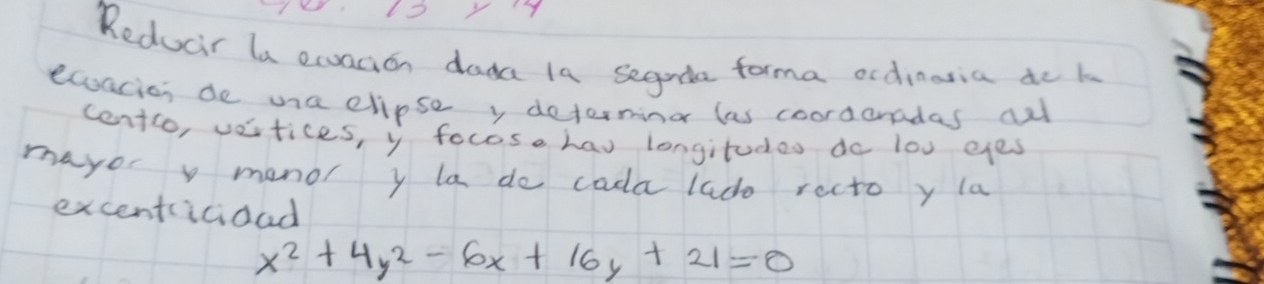 13 y 14
Reducir la ecuación dada la segunda forma ordinaria de la
ecuación de una elipse y determinar las coordenadas del
centro, vértices, y focos. las longitudes de los ejes
mayor y menor y la de cada lado recto y la
excentricidad
x² + 4y² - 6x + 16y + 21 = 0